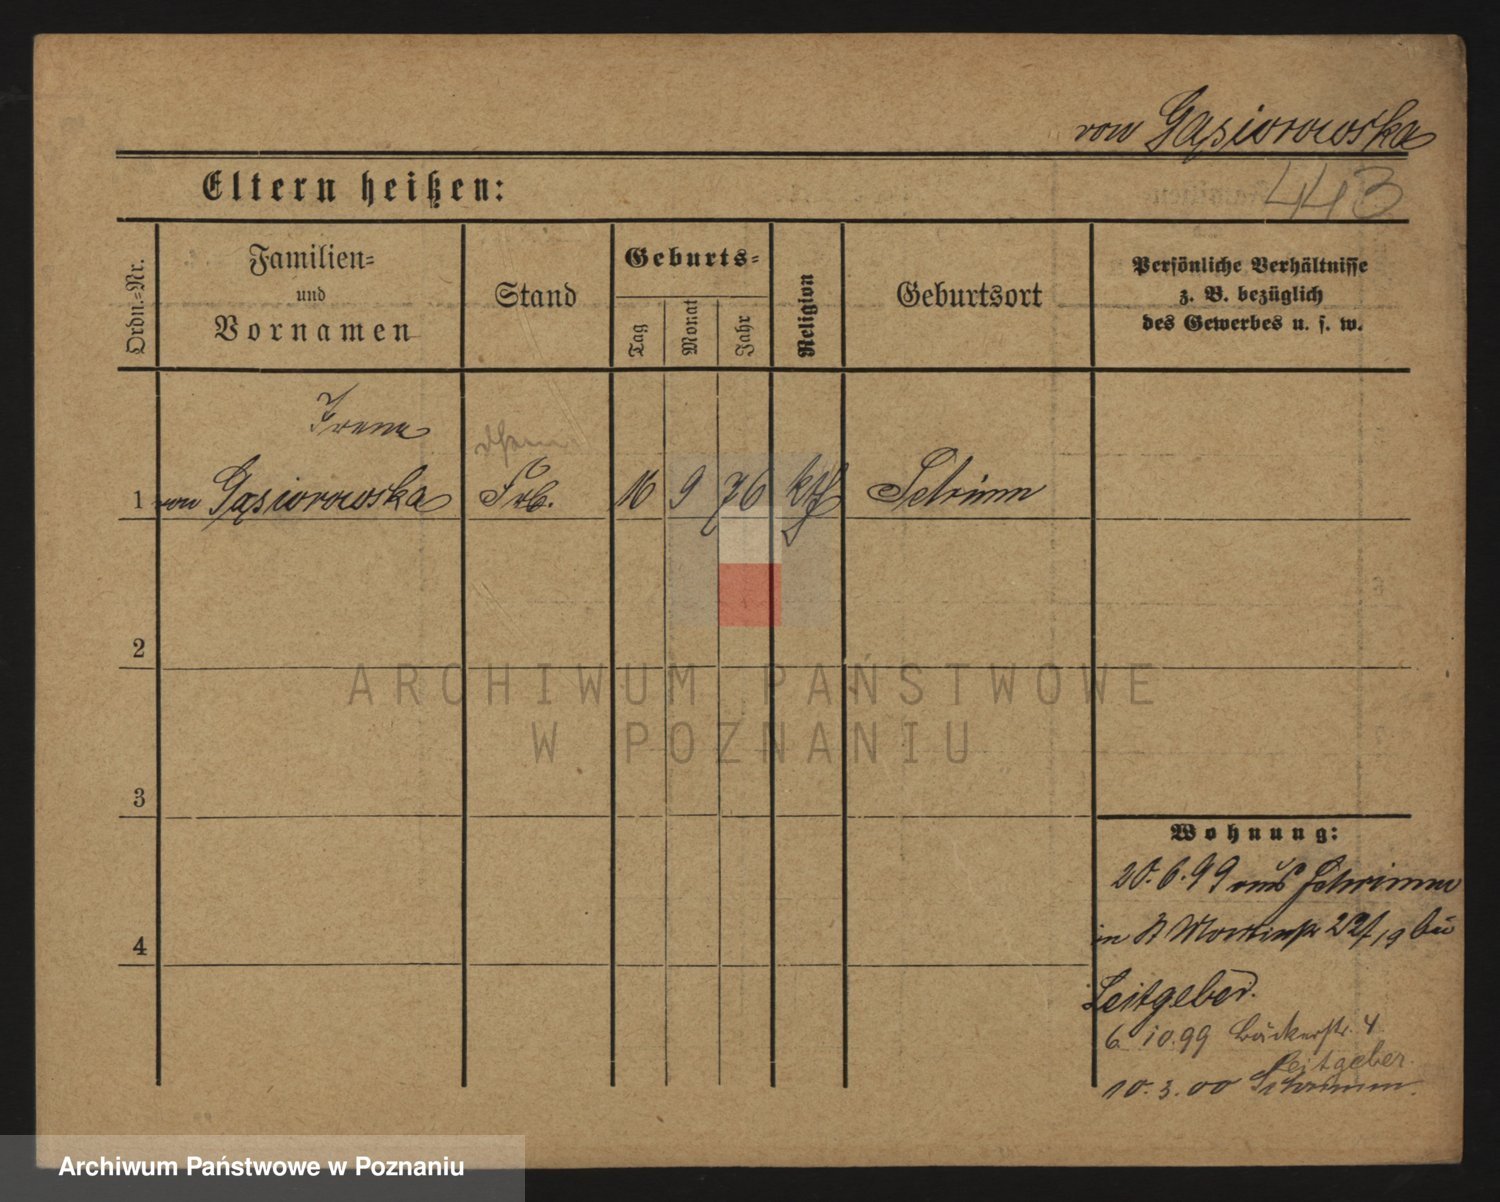 von Gąsiorowska
Eltern heißen:
443
Ordn.=Nr.
Familien=
und
Vornamen
Stand
Geburts=
Tag
Monat
Jahr
Religion
Geburtsort
Persönliche Verhältnisse
z. B. bezüglich
des Gewerbes u. s. w.
Irena
1 von Gąsiorowska Frl. 16 9 76 kth Schrimm
2
3
4
ARCHIWUM PAŃSTWOWE
W POZNANIU
Wohnung:
20.6.99 aus Schrimm
in St Martinstr 22/19 bei
Leitgeber.
6 10.99 Bäckerstr. 4
Leitgeber.
10.3.00 Schrimm.
Archiwum Państwowe w Poznaniu